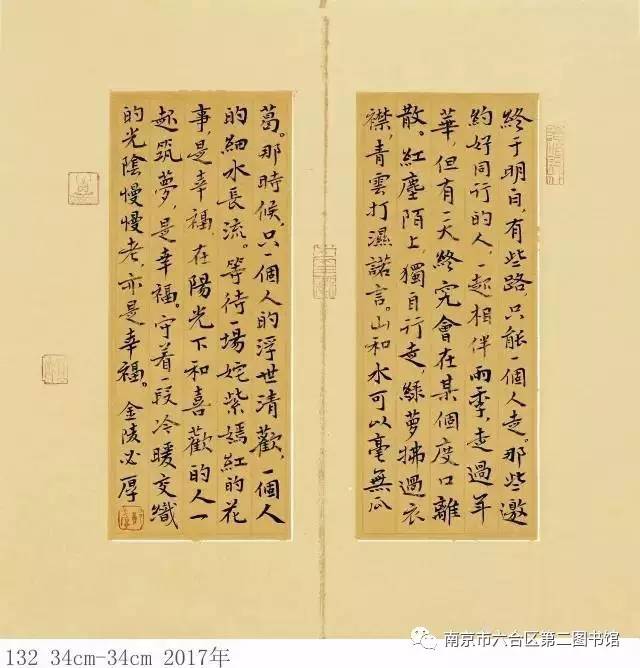 終于明白,有些路,只能一個人走。那些邀
約好同行的人,一起相伴雨季,走過年
華,但有一天終究會在某個度口離
散。紅塵陌上,獨自行走,緑蘿拂過衣
襟,青雲打濕諾言。山和水可以毫無瓜
葛。那時候,只一個人的浮世清歡,一個人
的細水長流。等待一場姹紫嫣紅的花
事,是幸福,在陽光下和喜歡的人一
起筑夢,是幸福。守着一段冷暖交織
的光陰慢慢老,亦是幸福。金陵必厚
132 34cm-34cm 2017年
南京市六合区第二图书馆